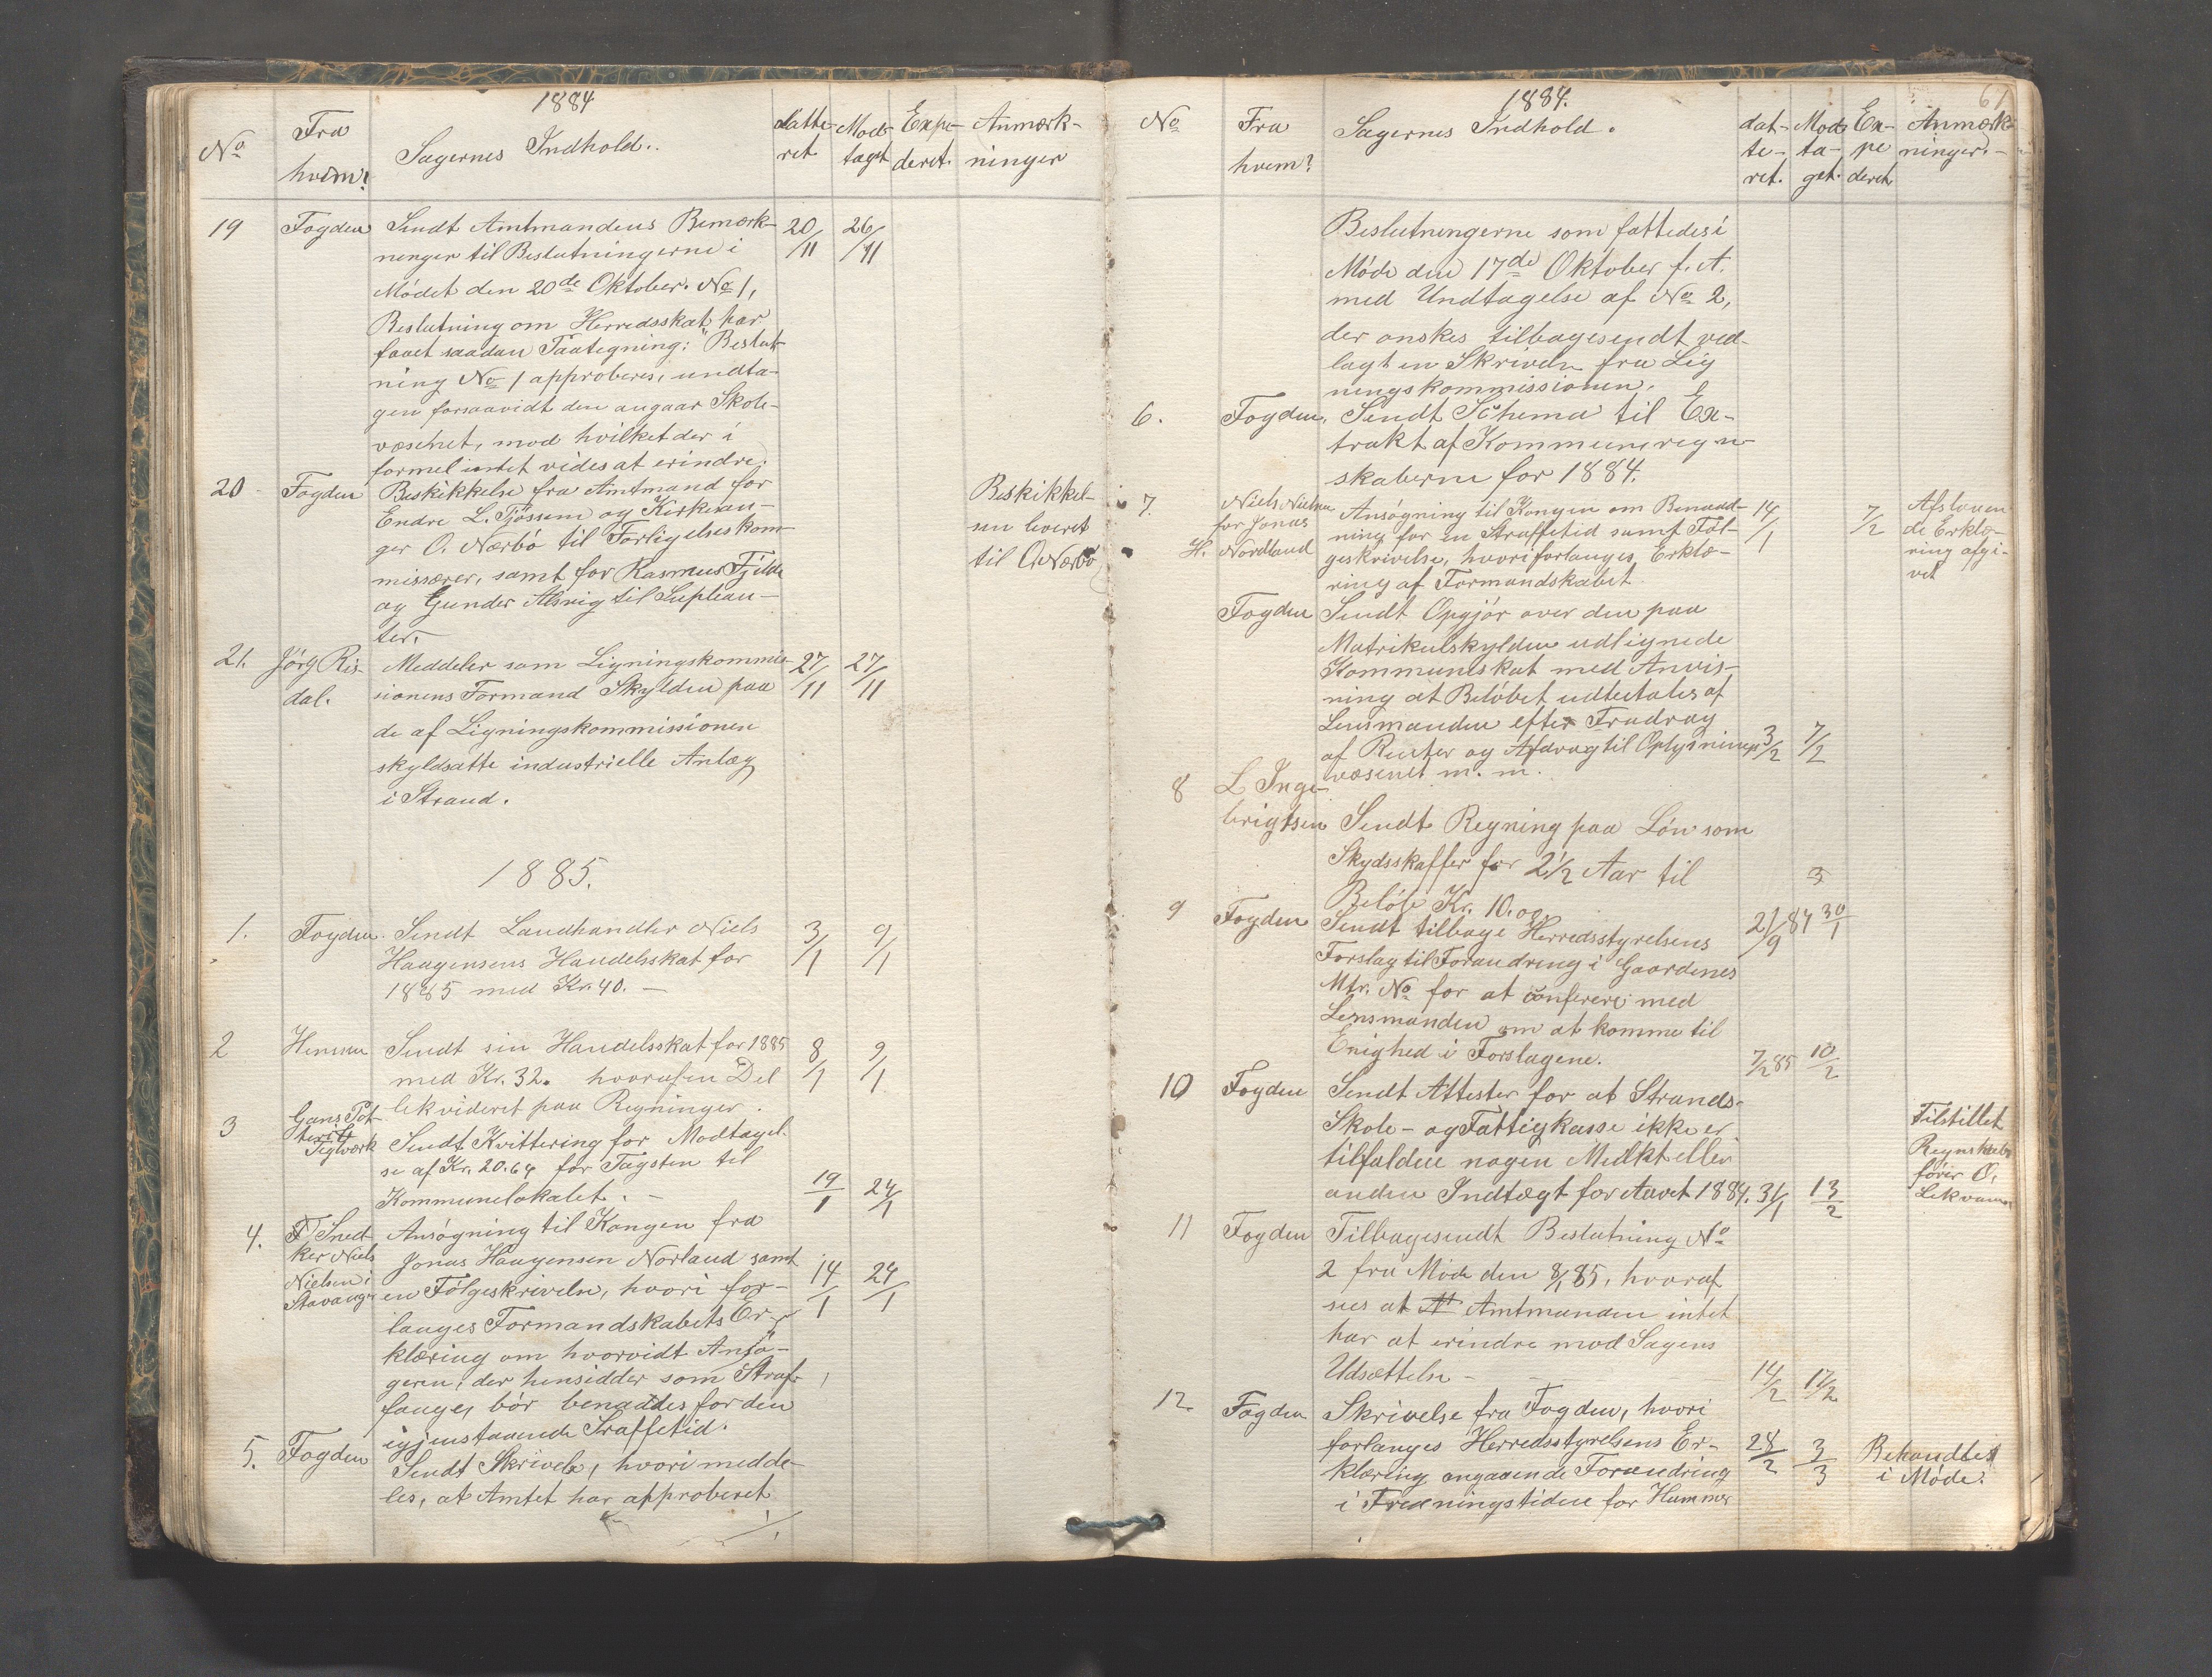 1884
No
Fra hvem?
Sagernes Indhold.
datte-ret
Mod-taget
Expe-deret.
Anmærk-ninger
19 Fogden Sendt Amtmandens Bemærk- 20/11 26/11
ninger til Beslutningerne i
Mødet den 20de Oktober. No 1,
Beslutning om Herredsskat har
faaet saadan Paategning: "Beslut-
ning No 1 approberes, undta-
gen forsaavidt den angaar Skole-
væsenet, mod hvilket der i
formel intet vides at erindre.
20 Fogden Beskikkelse fra Amtmand for Beskikkel-
Endre L. Tjössem og Kirkesan- sen leveret
ger O. Nærbö til Forligelseskom- til O. Nærbö
missærer, samt for Rasmus Fjelde
og Gunder Alsvig til Suplean-
ter.
21. Jörg Ris- Meddeler som Ligningskommis- 27/11 27/11
dal. sionens Formand Skylden paa
de af Ligningskommissionen
skyldsatte industrielle Anlæg
i Strand.
1885.
1. Fogden. Sendt Landhandler Niels 3/1 9/1
Haagensens Handelsskat for
1885 med Kr. 40. —
2 Hensen Sendt sin Handelsskat for 1885 8/1 9/1
med Kr. 32. hvoraf en Del
likvideret paa Regninger.
3 Gans Pot-
teri &
Teglværk Sendt Kvittering for Modtagel-
se af Kr. 20.64 for Tagsten til
Kommunelokalet. — 19/1 24/1
4. Sned- Ansögning til Kongen fra
ker Niels Jonas Haagensen Norland samt 14/1 24/1
Nielsen i
Stavanger en Fölgeskrivelse, hvori for-
langes Formandskabets Er-
klæring om hvorvidt Ansö-
geren, der hensidder som Straf-
fange, bör benaades for den
igjenstaaende Straffetid.
5. Fogden Sendt Skrivelse, hvori medde-
les, at Amtet har approberet
1884.
61
No
Fra hvem?
Sagernes Indhold.
dat-te-ret.
Mod-ta-get.
Ex-pe-deret
Anmærk-ninger.
Beslutningerne som fattedes i
Möde den 17de Oktober f. A.
med Undtagelse af No 2,
der önskes tilbagesendt ved-
lagt en Skrivelse fra Lig
ningskommissionen.
6. Fogden. Sendt Schema til Ex-
trakt af Kommuneregn-
skaberne for 1884.
7. Niels Nielsen
for Jonas
H. Nordland Ansögning til Kongen om Benaad- 14/1 7/2 Afslaaen
ning for en Straffetid samt Föl- de Erklæ-
geskrivelse, hvori forlanges Erklæ- ring afgi-
ring af Formandskabet. vet
Fogden Sendt Opgjör over den paa
Matrikulskylden udlignede
Kommuneskat med Anvis-
ning at Belöbet udbetales af
Lensmanden efter Fradrag
af Renter og Afdrag til Oplysnings 3/2 7/2
væsenet m. m.
8 L Inge-
brigtsen Sendt Regning paa Lön som
Skydsskaffer for 2 1/2 Aar til
Belöb Kr. 10.00.
9 Fogden Sendt tilbage Herredsstyrelsens 21/9 84 30/1
Forslag til Forandring i Gaardenes
Mtr. No for at conferere med
Lensmanden om at komme til
Enighed i Forslagene. 7/2 85 10/2
10 Fogden Sendt Attester for at Strands
Skole- og Fattigkasse ikke er Tilstillet
tilfalden nogen Mulkt eller Regnskabs
anden Indtægt for Aaret 1884. 31/1 13/2 förer O. Lekvam
11 Fogden Tilbagesendt Beslutning No
2 fra Möde den 8/1 85, hvoraf
sees at Amtmanden intet
har at erindre mod Sagens
Udsættelse — 14/2 17/2
12. Fogden Skrivelse fra Fogden, hvori
forlanges Herredsstyrelsens Er- 28/2 3/3 Behandlet
klæring angaaende Forandring i Möde.
i Fredningstiden for Hummer